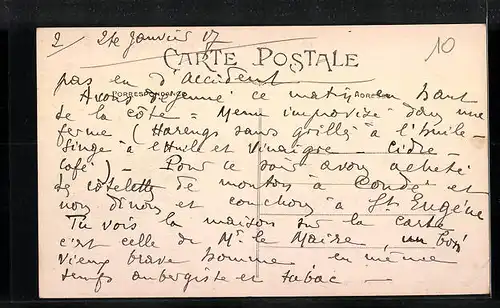 2/ 24e Janvier 17
10
CARTE POSTALE
pas eu d'accident
CORRESPONDANCE
Avons déjeuné ce matin en haut
de la côte = Menu improvizé dans une
ferme (Harengs saurs grillés à l'huile -
Singe à l'Huile et Vinaigre - Cidre
Café) - Pour ce soir avons acheté
des côtelettes de mouton à Condé et
nous dînons et couchons à St Eugène
Tu vois la maison sur la carte
c'est celle de Mr le Maire, un bon
vieux brave homme en même
temps aubergiste et tabac -